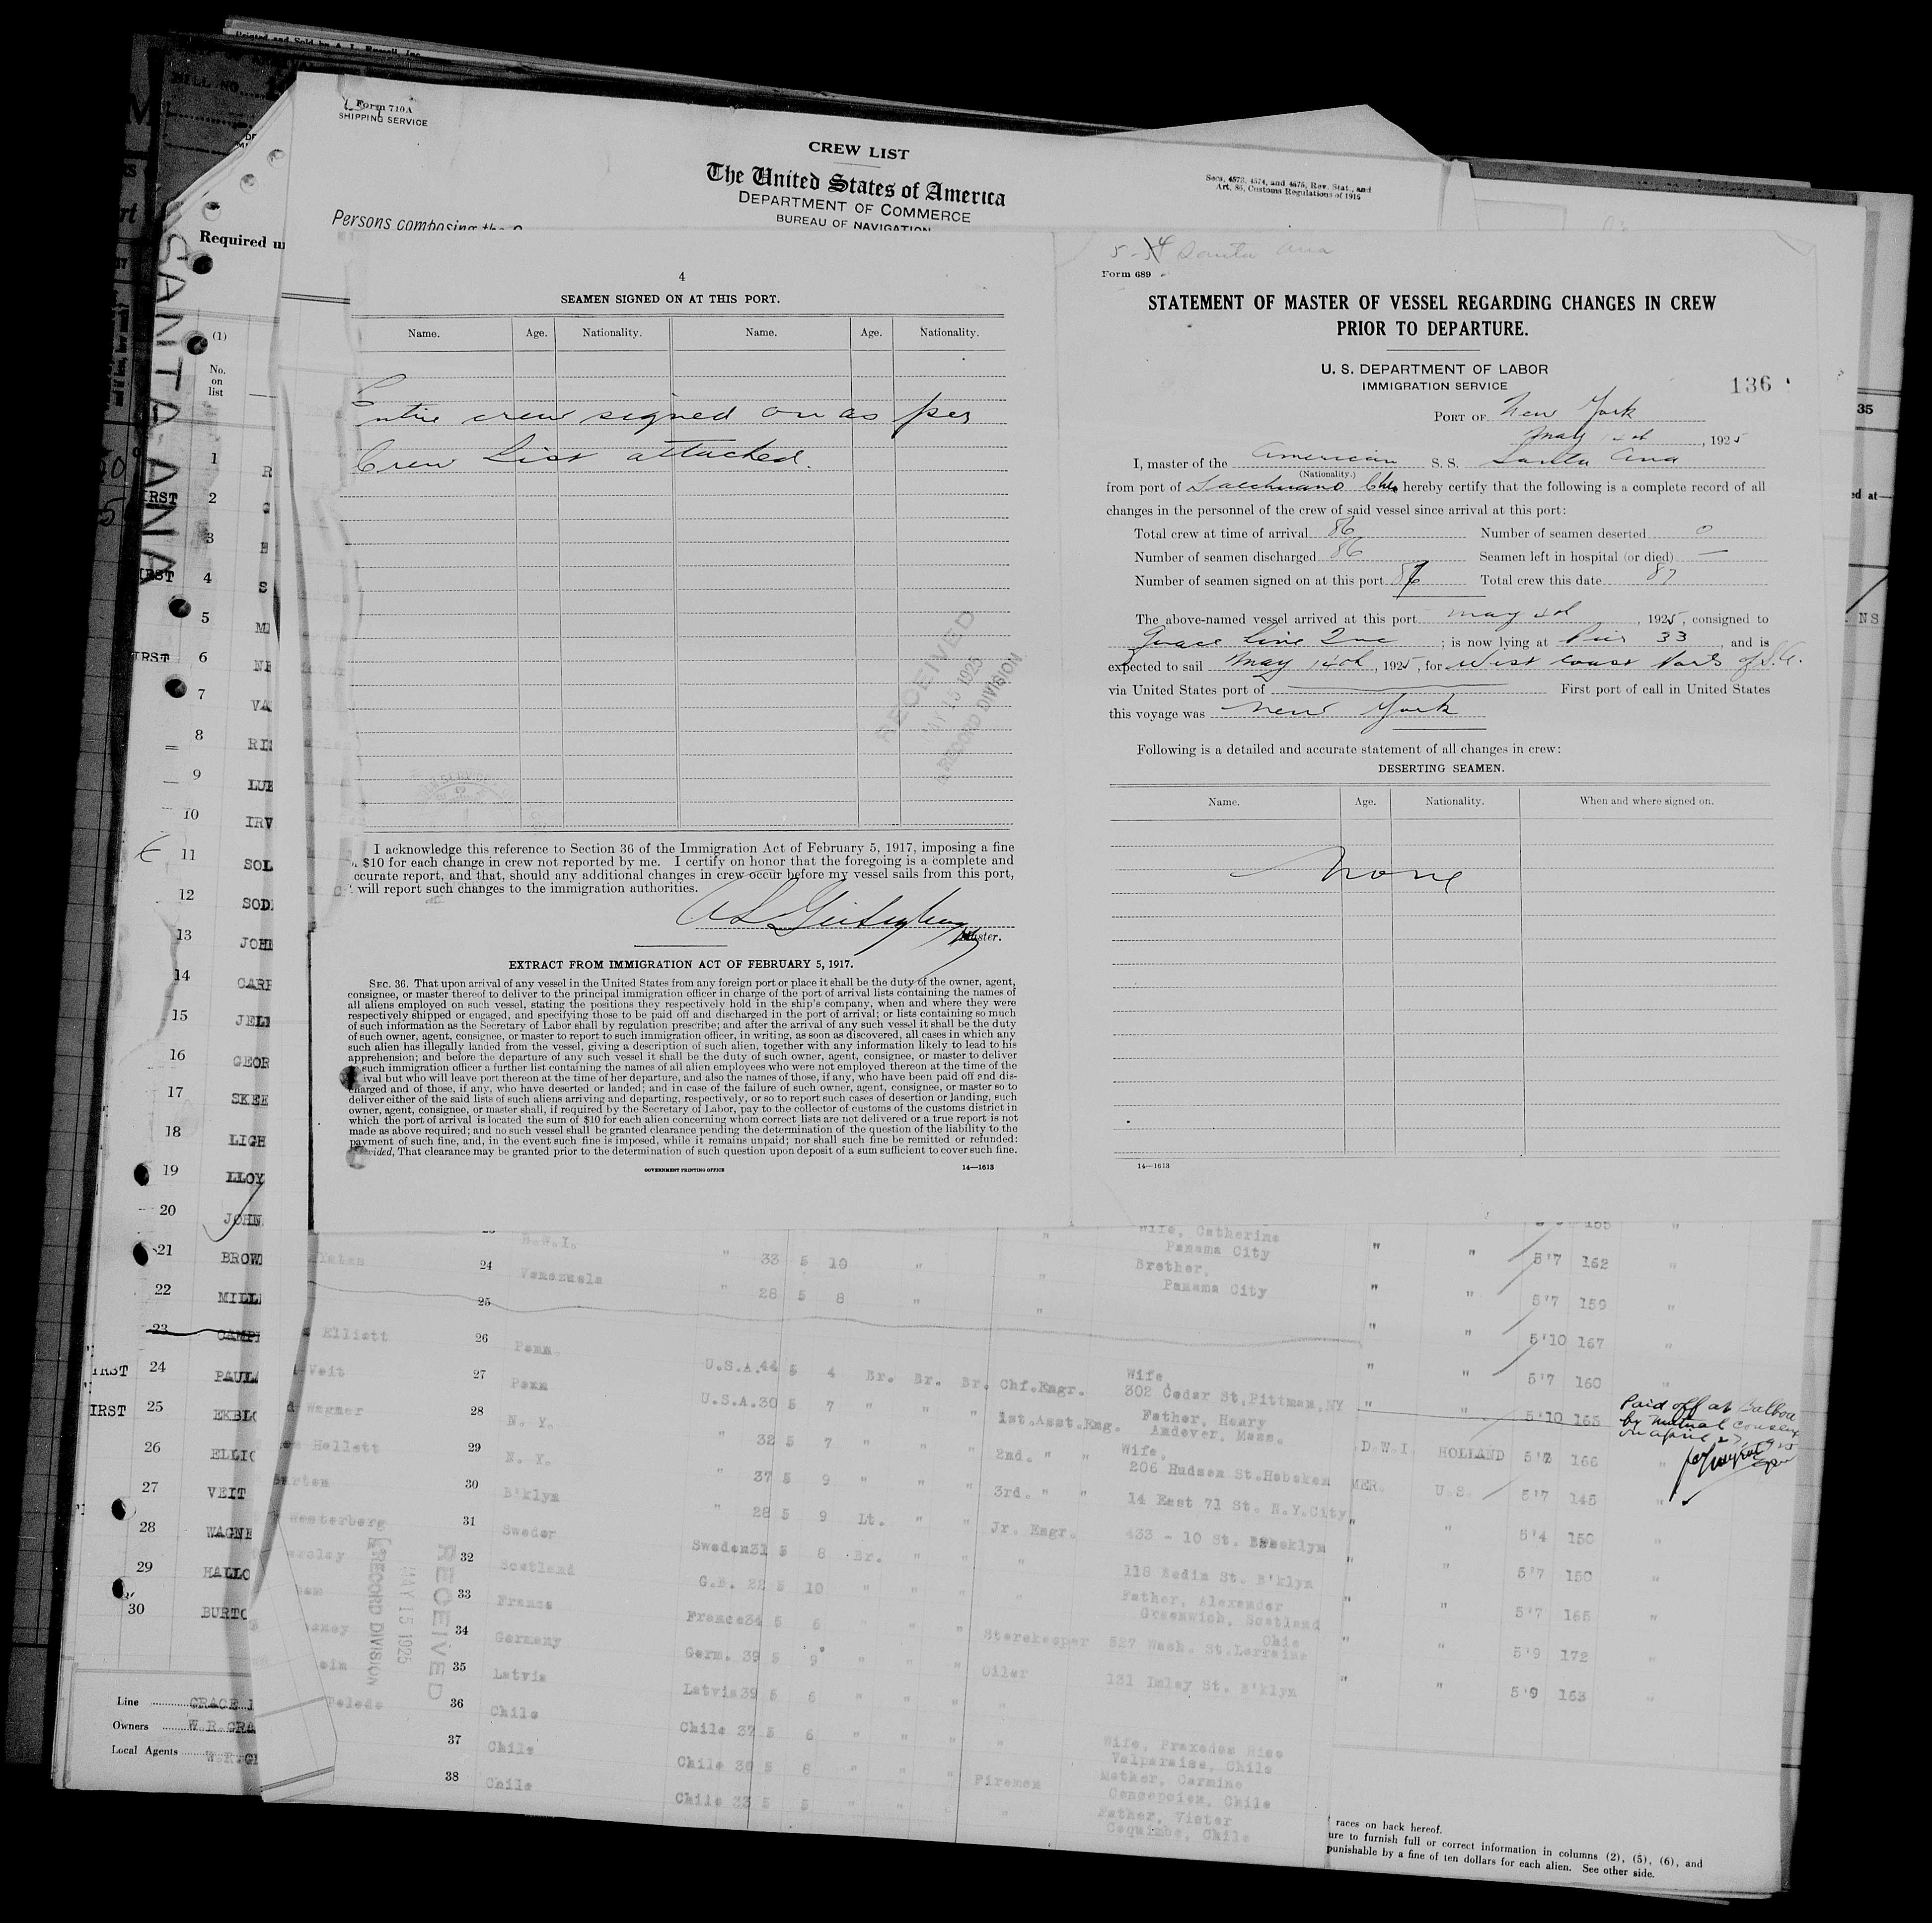 Printed and Sold by A. L. Russell, Inc.
Form 710A
SHIPPING SERVICE
CREW LIST
The United States of America
DEPARTMENT OF COMMERCE
BUREAU OF NAVIGATION
Secs. 4573, 4574, and 4575, Rev. Stat., and
Art. 86, Customs Regulations of 1915
Persons composing the
SANTA ANA
Required u
(1)
No.
on
list
4
SEAMEN SIGNED ON AT THIS PORT.
Name. Age. Nationality. Name. Age. Nationality.
Entire crew signed on as per
Crew List attached.
RECEIVED
MAY 15 1925
RECORD DIVISION
I acknowledge this reference to Section 36 of the Immigration Act of February 5, 1917, imposing a fine
$10 for each change in crew not reported by me. I certify on honor that the foregoing is a complete and
ccurate report, and that, should any additional changes in crew occur before my vessel sails from this port,
will report such changes to the immigration authorities.
Master.
EXTRACT FROM IMMIGRATION ACT OF FEBRUARY 5, 1917.
SEC. 36. That upon arrival of any vessel in the United States from any foreign port or place it shall be the duty of the owner, agent,
consignee, or master thereof to deliver to the principal immigration officer in charge of the port of arrival lists containing the names of
all aliens employed on such vessel, stating the positions they respectively hold in the ship's company, when and where they were
respectively shipped or engaged, and specifying those to be paid off and discharged in the port of arrival; or lists containing so much
of such information as the Secretary of Labor shall by regulation prescribe; and after the arrival of any such vessel it shall be the duty
of such owner, agent, consignee, or master to report to such immigration officer, in writing, as soon as discovered, all cases in which any
such alien has illegally landed from the vessel, giving a description of such alien, together with any information likely to lead to his
apprehension; and before the departure of any such vessel it shall be the duty of such owner, agent, consignee, or master to deliver
such immigration officer a further list containing the names of all alien employees who were not employed thereon at the time of the
ival but who will leave port thereon at the time of her departure, and also the names of those, if any, who have been paid off and dis-
charged and of those, if any, who have deserted or landed; and in case of the failure of such owner, agent, consignee, or master so to
deliver either of the said lists of such aliens arriving and departing, respectively, or so to report such cases of desertion or landing, such
owner, agent, consignee, or master shall, if required by the Secretary of Labor, pay to the collector of customs of the customs district in
which the port of arrival is located the sum of $10 for each alien concerning whom correct lists are not delivered or a true report is not
made as above required; and no such vessel shall be granted clearance pending the determination of the question of the liability to the
payment of such fine, and, in the event such fine is imposed, while it remains unpaid; nor shall such fine be remitted or refunded:
vided, That clearance may be granted prior to the determination of such question upon deposit of a sum sufficient to cover such fine.
GOVERNMENT PRINTING OFFICE 14—1613
Santa Ana
Form 689
STATEMENT OF MASTER OF VESSEL REGARDING CHANGES IN CREW
PRIOR TO DEPARTURE.
U. S. DEPARTMENT OF LABOR
IMMIGRATION SERVICE
136
PORT OF New York
May 14th, 1925
I, master of the American S. S. Santa Ana
(Nationality.)
from port of Talcahuano Chile hereby certify that the following is a complete record of all
changes in the personnel of the crew of said vessel since arrival at this port:
Total crew at time of arrival 86 Number of seamen deserted 0
Number of seamen discharged 86 Seamen left in hospital (or died) —
Number of seamen signed on at this port 87 Total crew this date 87
The above-named vessel arrived at this port May 4th, 1925, consigned to
Grace Line Inc; is now lying at Pier 33, and is
expected to sail May 14th, 1925, for West coast Ports of S.A.
via United States port of — First port of call in United States
this voyage was New York
Following is a detailed and accurate statement of all changes in crew:
DESERTING SEAMEN.
Name. Age. Nationality. When and where signed on.
None
14—1613
1 R
IRST 2
3
IRST 4 S
5
IRST 6
7 VA
8 RI
9 LUE
10 IRV
11 SOL
12 SOD
13 JOH
14 CARE
15 JEL
16 GEOR
17 SKEE
18 LIGH
19 LLOY
20 JOHN
21 BROW
22 MILL
23 CAMP
IRST 24 PAUL
IRST 25 EKBLO
26 ELLIO
27 VEIT
28 WAGNE
29 HALLO
30 BURTO
Line GRACE
Owners W.R.GRA
Local Agents
B.W.I. Wife, Catherine
24 " 33 5 10 " Panama City " " 5'7 162 "
Venezuela Brother,
25 " 28 5 8 " Panama City " " 5'7 159 "
" " 5'10 167 "
Elliott 26 Penn U.S.A. 44 5 4 Br. Br. Br. Chf.Engr. Wife, " " 5'7 160 "
302 Cedar St, Pittman, NY
Veit 27 Penn U.S.A. 30 5 7 " " " 1st.Asst.Eng. Father, Henry " " 5'10 165
Andover, Mass.
Wagner 28 N. Y. " 32 5 7 " " " 2nd. " " Wife, D.W.I. HOLLAND 166 "
206 Hudson St. Hoboken
Hallett 29 N. Y. " 37 5 9 " " " 3rd. " " 14 East 71 St. N.Y.City MER. U.S. 5'7 145 "
Burton 30 B'klyn " 28 5 9 Lt. " " Jr. Engr. 433 - 10 St. Brooklyn " " 5'4 150 "
Westerberg 31 Sweden Sweden 31 5 8 Br. " " " 118 St. B'klyn " " 5'7 150 "
32 Scotland G.B. 22 5 10 " " " Father, Alexander " " 5'7 165 "
Greenwich, Scotland
33 France France 34 5 6 " " " Storekeeper 527 Wash. St. Lorraine Ohio " " 5'9 172 "
34 Germany Germ. 39 5 9 " " " Oiler 131 Imlay St. B'klyn " " 5'9 163 "
35 Latvia Latvia 39 5 6 " " "
Toledo 36 Chile Chile 37 5 6 " " " Wife, Praxedes Rios
Valparaiso, Chile
37 Chile Chile 30 5 8 " " " Firemen Mother, Carmine
Concepcion, Chile
38 Chile Chile 33 5 5 " " " Father, Victor
Coquimbo, Chile
Paid off at Balboa
by mutual consent
on april 27, 1925
RECEIVED
MAY 15 1925
RECORD DIVISION
35
ed at—
NS
races on back hereof.
ure to furnish full or correct information in columns (2), (5), (6), and
punishable by a fine of ten dollars for each alien. See other side.